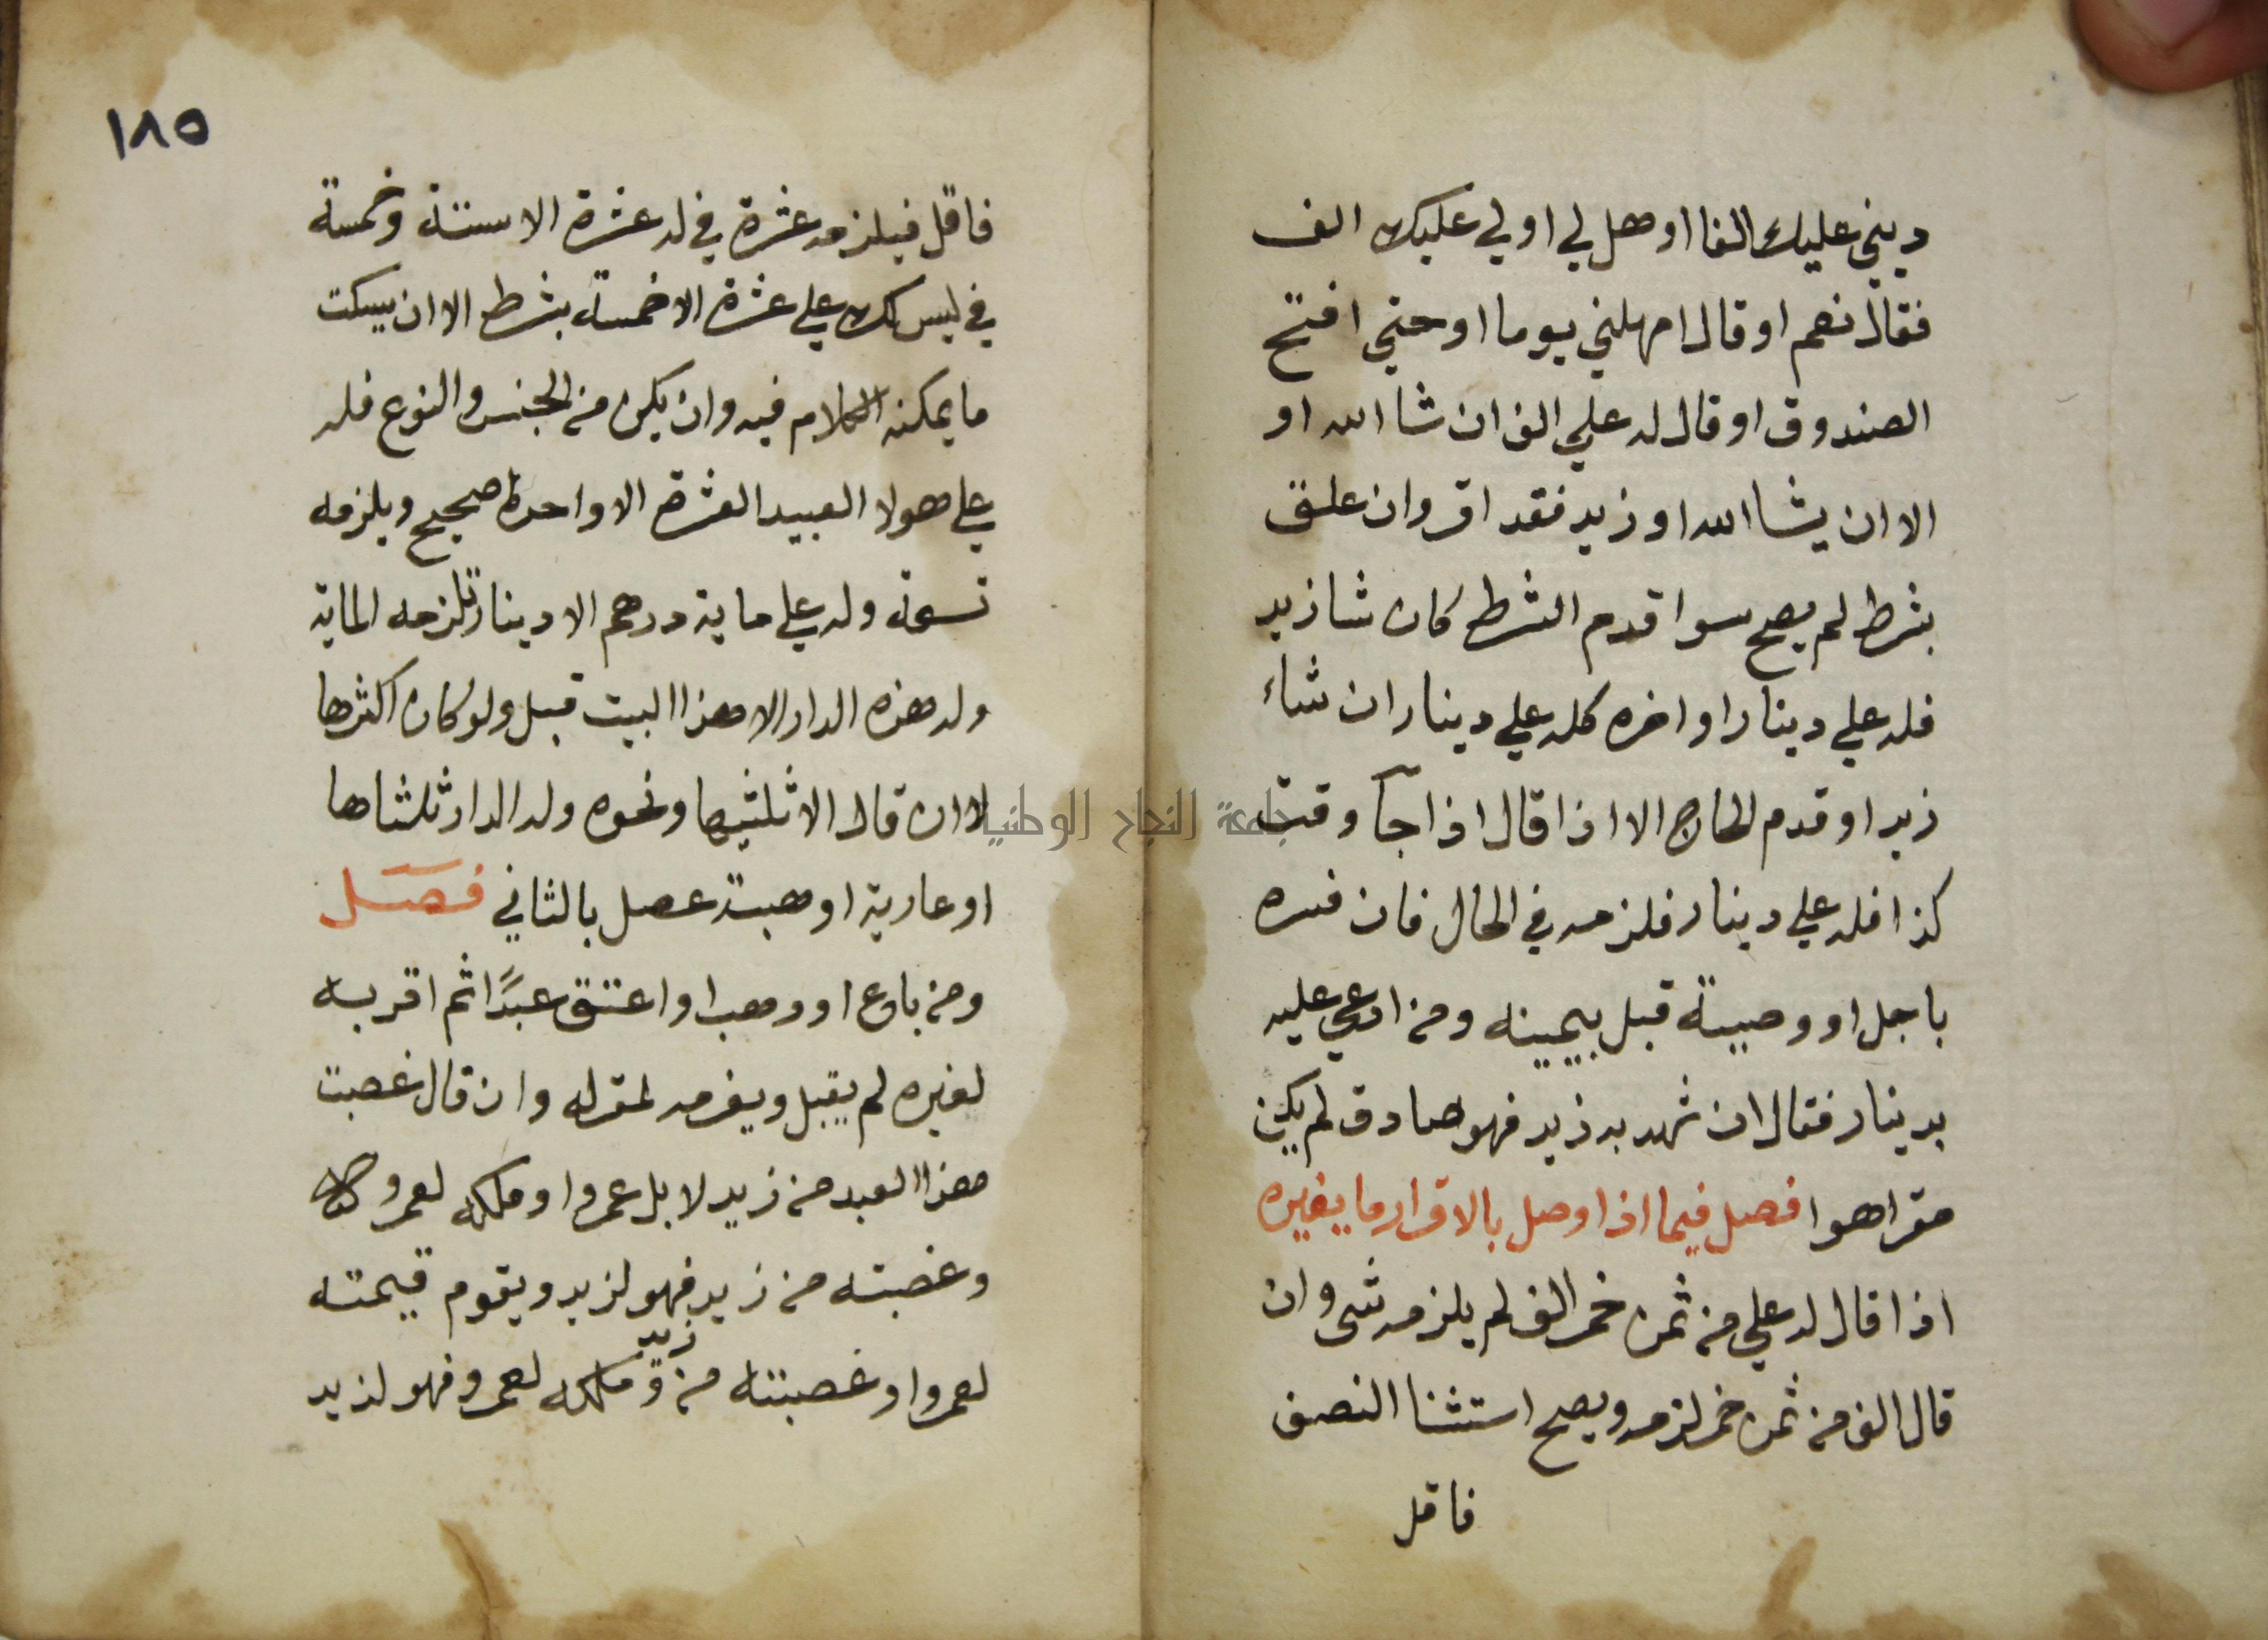 ديني عليك الفا او هل لي او لي عليك الف
فقال نعم او قال امهلني يوما او حتي افتح
الصندوق او قال له علي الف ان شا الله او
الا ان يشا الله او زيد فقد اقر وان علق
بشرط لم يصح سوا قدم الشرط كان شا زيد
فله علي دينار او اخره كله علي دينار ان شاء
زيد او قدم الحاج الا اذا قال اذا جآ وقت
كذا فله علي دينار فلزمه في الحال فان فسره
باجل او وصية قبل بيمينه ومن ادعي عليه
بدينار فقال ان شهد به زيد فهو صادق لم يكن
مقرا هوا فصل فيما اذا وصل بالاقرار ما يغيره
اذا قال له علي من ثمن خمر الف لم يلزمه شي وان
قال الف من ثمن خمر لزمه ويصح استثنا النصف
فاقل
١٨٥
فاقل فيلزمه عشرة في له عشرة الا ستة وخمسة
في ليس لك علي عشرة الا خمسة بشرط الا ان يسكت
ما يمكنه الكلام فيه وان يكن من الجنس والنوع فله
علي هولا العبيد العشرة الا واحدة صحيح ويلزمه
تسعة وله علي ماية درهم الا دينار تلزمه الماية
وله هذه الدار الا هذا البيت قبل ولو كان اكثرها
لا ان قال الا ثلثيها ونحوه وله الدار ثلثاها
او عارية او هبة عصل بالثاني فصل
ومن باع او وهب او اعتق عبدًا ثم اقر به
لغيره لم يقبل ويغرمه لمقر له وان قال غصبت
هذا العبد من زيد لا بل عمروا وملكه لعمرو
وغصبته من زيد فهو لزيد ويقوم قيمته
لعمروا وغصبته من زيد وملكه لعمرو فهو لزيد
جامعة النجاح الوطنية